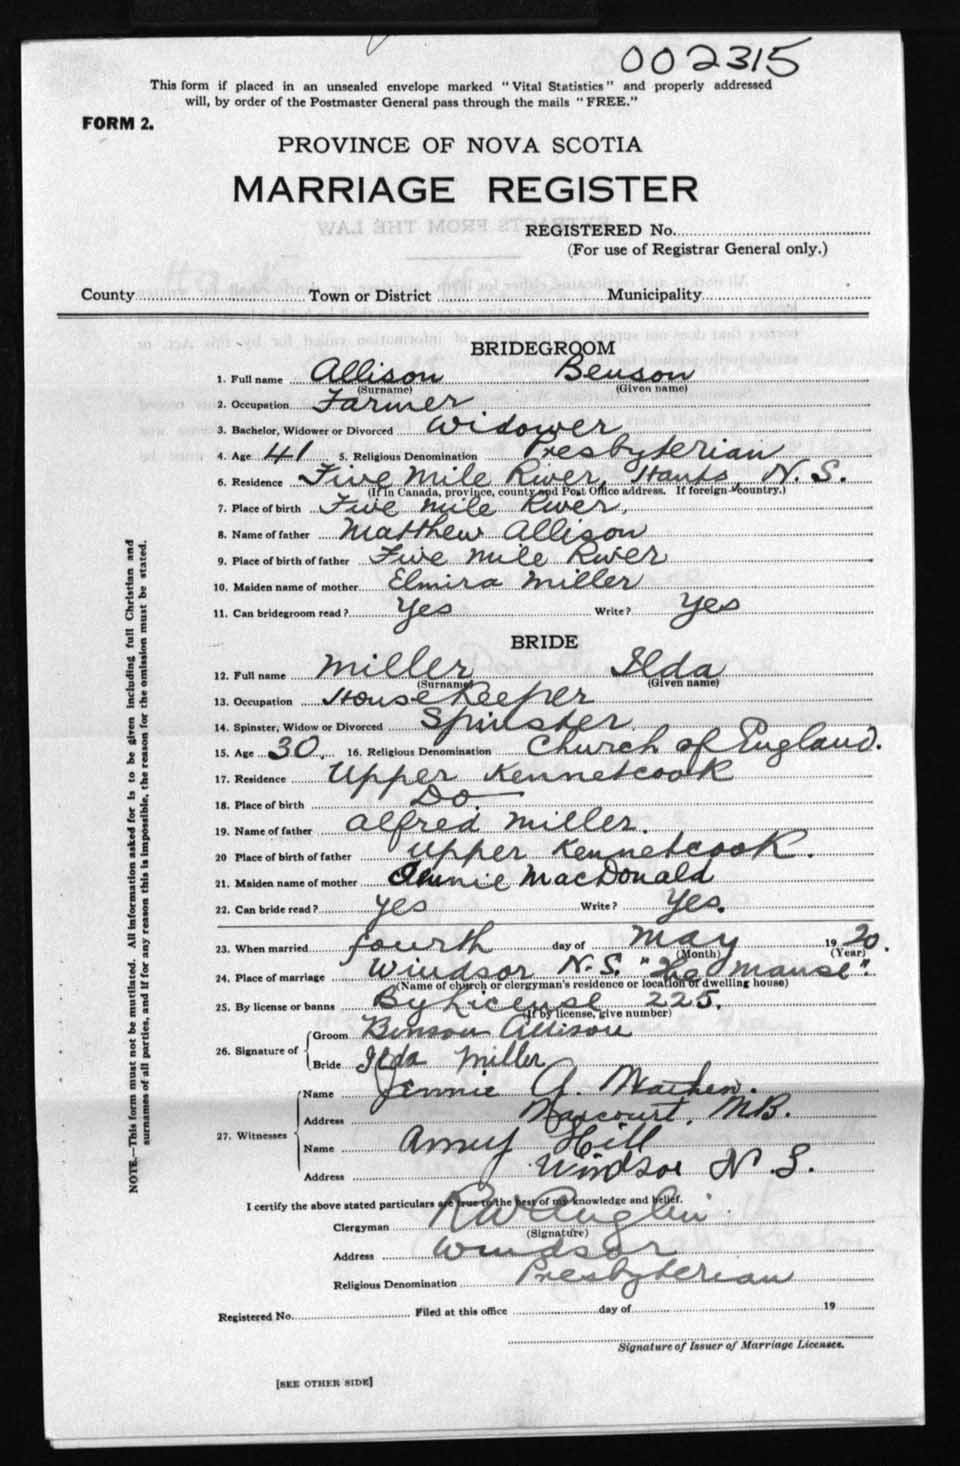 002315
This form if placed in an unsealed envelope marked "Vital Statistics" and properly addressed
will, by order of the Postmaster General pass through the mails "FREE."
FORM 2.
PROVINCE OF NOVA SCOTIA
MARRIAGE REGISTER
REGISTERED No.
(For use of Registrar General only.)
County Town or District Municipality
BRIDEGROOM
1. Full name Allison Benson
(Surname) (Given name)
2. Occupation Farmer
3. Bachelor, Widower or Divorced Widower
4. Age 41 5. Religious Denomination Presbyterian
6. Residence Five Mile River, Hants, N.S.
(If in Canada, province, county and Post Office address. If foreign country.)
7. Place of birth Five Mile River.
8. Name of father Matthew Allison
9. Place of birth of father Five Mile River
10. Maiden name of mother Elmira Miller
11. Can bridegroom read? Yes Write? Yes
BRIDE
12. Full name Miller Ilda
(Surname) (Given name)
13. Occupation Housekeeper
14. Spinster, Widow or Divorced Spinster
15. Age 30. 16. Religious Denomination Church of England.
17. Residence Upper Kennetcook
18. Place of birth Do.
19. Name of father Alfred Miller.
20 Place of birth of father Upper Kennetcook.
21. Maiden name of mother Annie MacDonald
22. Can bride read? yes Write? Yes.
23. When married fourth day of May 1920.
(Month) (Year)
24. Place of marriage Windsor N.S. "The Manse".
(Name of church or clergyman's residence or location of dwelling house)
25. By license or banns By License 225.
(If by license, give number)
26. Signature of Groom Benson Allison
Bride Ilda Miller
27. Witnesses
Name Jennie A.
Address Harcourt, N.B.
Name Amy Hill
Address Windsor N.S.
I certify the above stated particulars are true to the best of my knowledge and belief.
Clergyman R W Anglin
(Signature)
Address Windsor
Religious Denomination Presbyterian
Registered No. Filed at this office day of 19
Signature of Issuer of Marriage Licenses.
[SEE OTHER SIDE]
NOTE.—This form must not be mutilated. All information asked for is to be given including full Christian and
surnames of all parties, and if for any reason this is impossible, the reason for the omission must be stated.